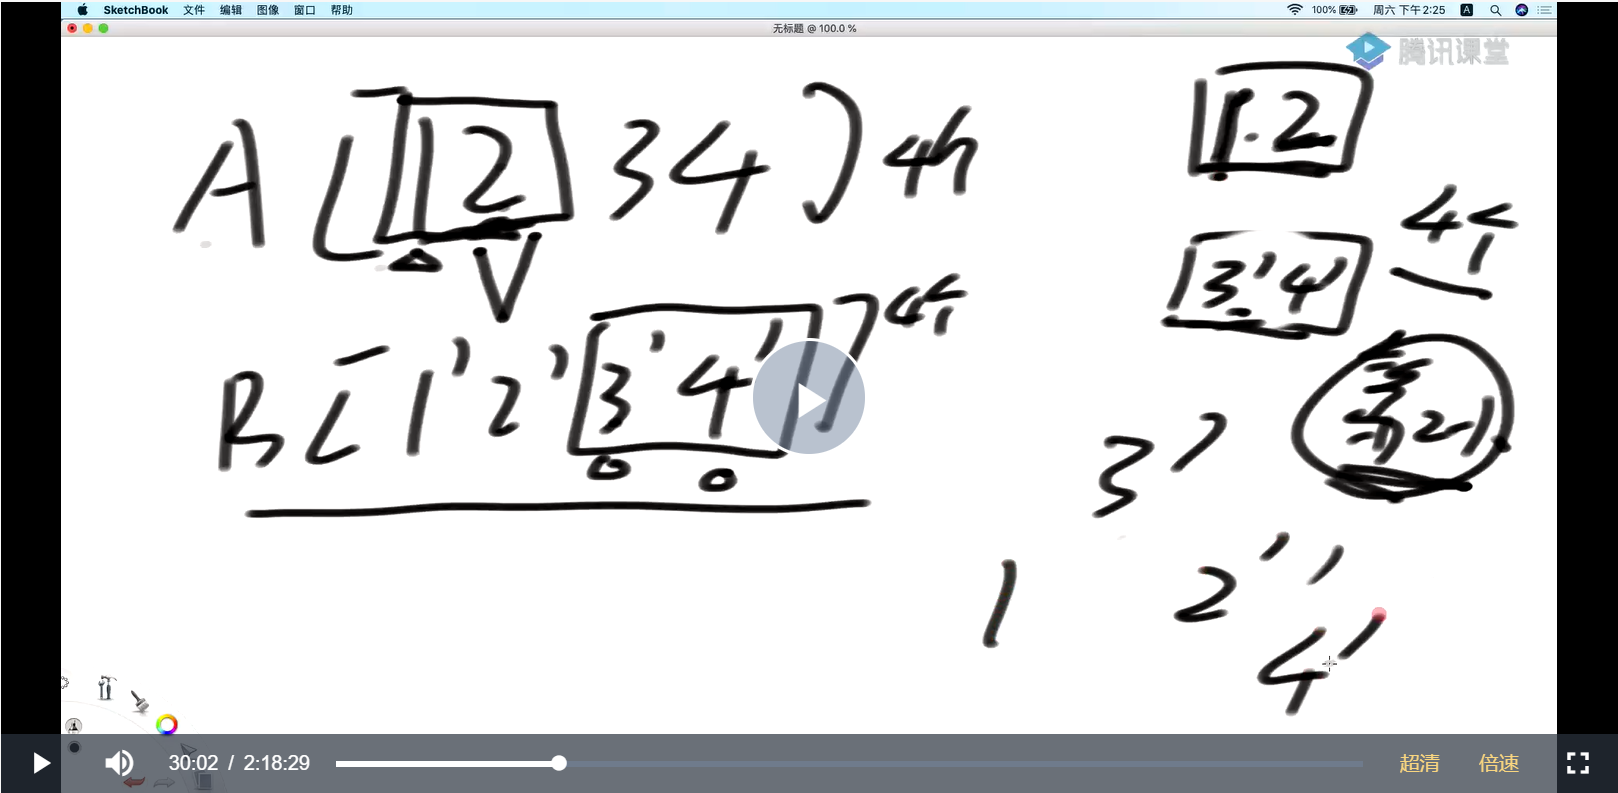 SketchBook 文件 编辑 图像 窗口 帮助 100% 周六 下午2:25 A
无标题 @ 100.0 %
腾讯课堂
A [ 1 2 3 4 ] 4
1.2
3' 4'
B [ 1' 2' 3' 4' ] 4个
4个
3'
1
2''
4'
30:02 / 2:18:29 超清 倍速